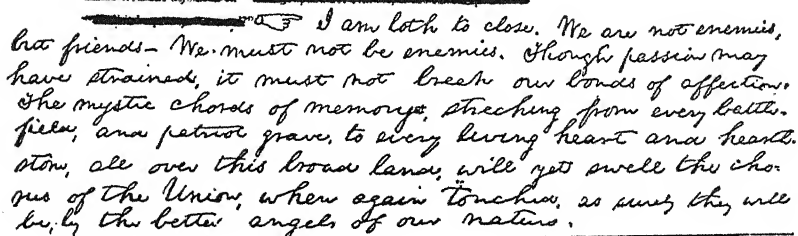 I am loth to close. We are not enemies,
but friends— We must not be enemies. Though passion may
have strained, it must not break our bonds of affection.
The mystic chords of memory, streching from every battle-
field, and patriot grave, to every living heart and hearth-
stone, all over this broad land, will yet swell the cho-
rus of the Union, when again touched, as surely they will
be, by the better angels of our nature.